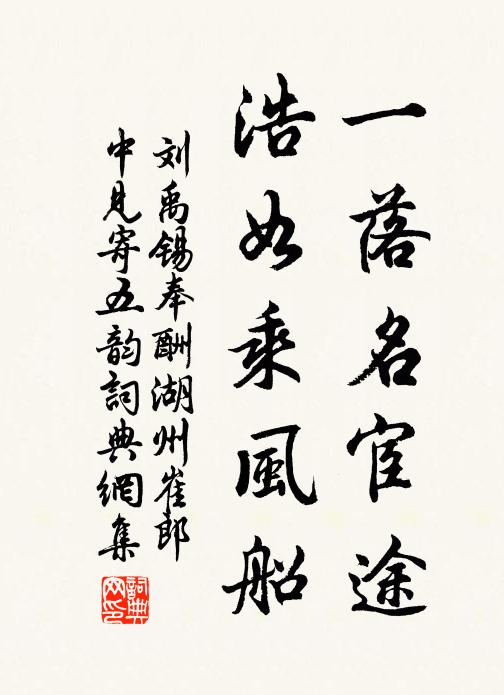 一落名宦途
浩如乘風船
刘禹锡奉酬湖州崔郎
中見寄五韵詞典網集
詞典
网印